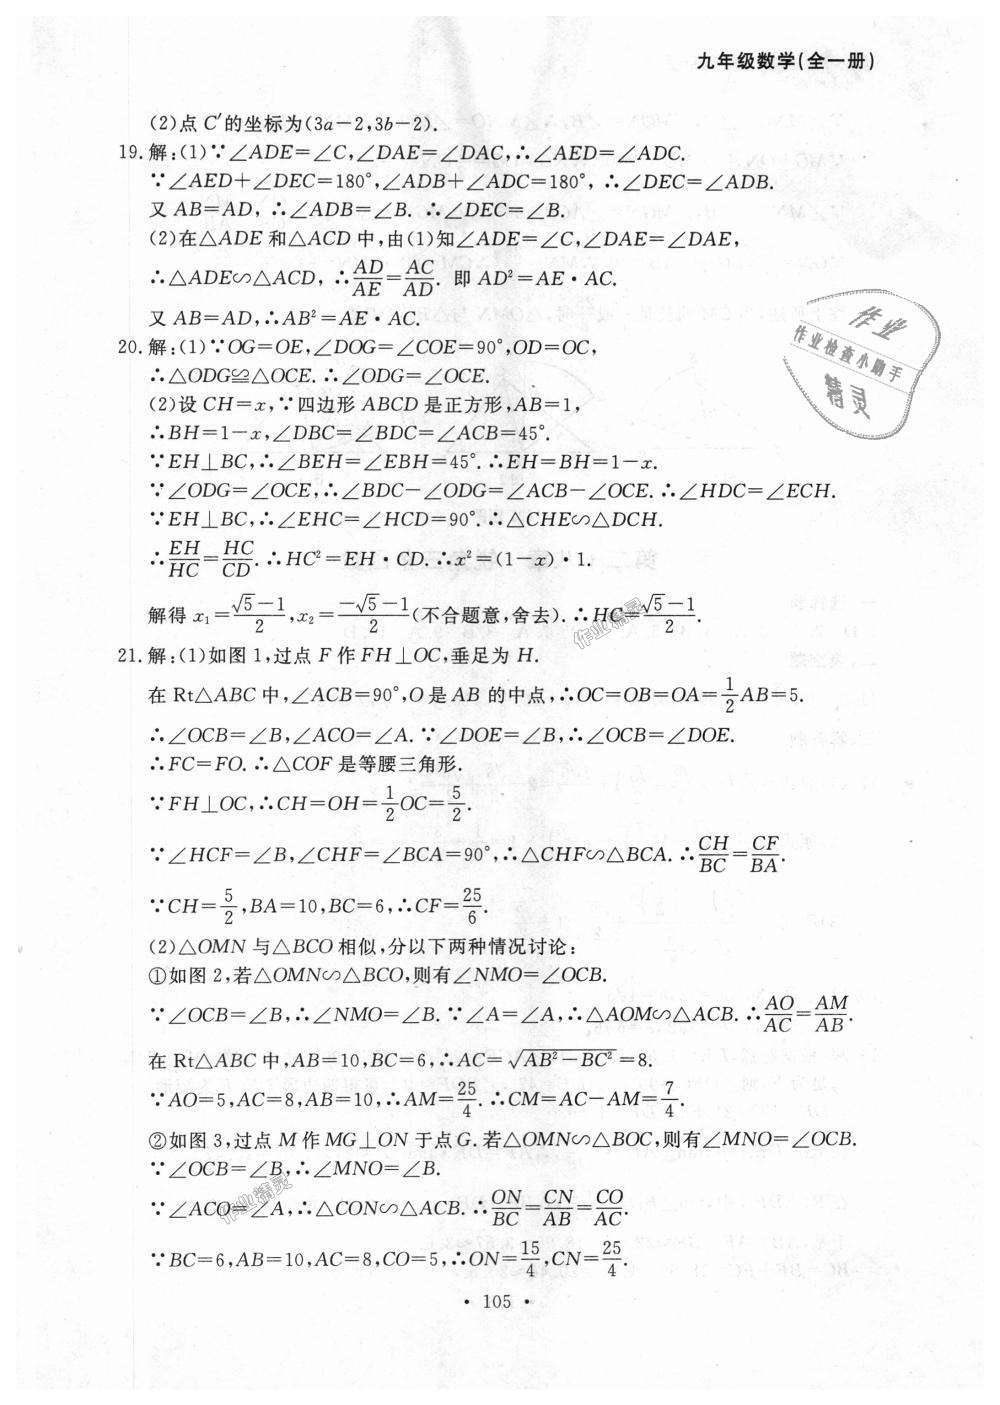 九年级数学(全一册)
(2)点 C′的坐标为(3a－2,3b－2).
19.解:(1)∵∠ADE=∠C,∠DAE=∠DAC,∴∠AED=∠ADC.
∵∠AED+∠DEC=180°,∠ADB+∠ADC=180°, ∴∠DEC=∠ADB.
又 AB=AD, ∴∠ADB=∠B. ∴∠DEC=∠B.
(2)在△ADE 和△ACD 中,由(1)知∠ADE=∠C,∠DAE=∠DAE,
∴△ADE∽△ACD, ∴AD/AE=AC/AD. 即 AD²=AE·AC.
又 AB=AD,∴AB²=AE·AC.
20.解:(1)∵OG=OE,∠DOG=∠COE=90°,OD=OC,
∴△ODG≌△OCE.∴∠ODG=∠OCE.
(2)设 CH=x,∵四边形 ABCD 是正方形,AB=1,
∴BH=1－x,∠DBC=∠BDC=∠ACB=45°.
∵EH⊥BC,∴∠BEH=∠EBH=45°.∴EH=BH=1－x.
∵∠ODG=∠OCE,∴∠BDC－∠ODG=∠ACB－∠OCE.∴∠HDC=∠ECH.
∵EH⊥BC,∴∠EHC=∠HCD=90°.∴△CHE∽△DCH.
∴EH/HC=HC/CD.∴HC²=EH·CD.∴x²=(1－x)·1.
解得 x₁=(√5－1)/2,x₂=(－√5－1)/2(不合题意,舍去).∴HC=(√5－1)/2.
21.解:(1)如图 1,过点 F 作 FH⊥OC,垂足为 H.
在 Rt△ABC 中,∠ACB=90°,O是 AB 的中点,∴OC=OB=OA=1/2AB=5.
∴∠OCB=∠B,∠ACO=∠A.∵∠DOE=∠B,∴∠OCB=∠DOE.
∴FC=FO.∴△COF 是等腰三角形.
∵FH⊥OC,∴CH=OH=1/2OC=5/2.
∵∠HCF=∠B,∠CHF=∠BCA=90°,∴△CHF∽△BCA.∴CH/BC=CF/BA.
∵CH=5/2,BA=10,BC=6,∴CF=25/6.
(2)△OMN 与△BCO 相似,分以下两种情况讨论:
①如图 2,若△OMN∽△BCO,则有∠NMO=∠OCB.
∵∠OCB=∠B,∴∠NMO=∠B.∵∠A=∠A,∴△AOM∽△ACB.∴AO/AC=AM/AB.
在 Rt△ABC 中,AB=10,BC=6,∴AC=√(AB²－BC²)=8.
∵AO=5,AC=8,AB=10,∴AM=25/4.∴CM=AC－AM=7/4.
②如图 3,过点 M 作 MG⊥ON 于点 G.若△OMN∽△BOC,则有∠MNO=∠OCB.
∵∠OCB=∠B,∴∠MNO=∠B.
∵∠ACO=∠A,∴△CON∽△ACB.∴ON/BC=CN/AB=CO/AC.
∵BC=6,AB=10,AC=8,CO=5,∴ON=15/4,CN=25/4.
·105·
作业
作业检查小助手
精灵
作业精灵
作业精灵